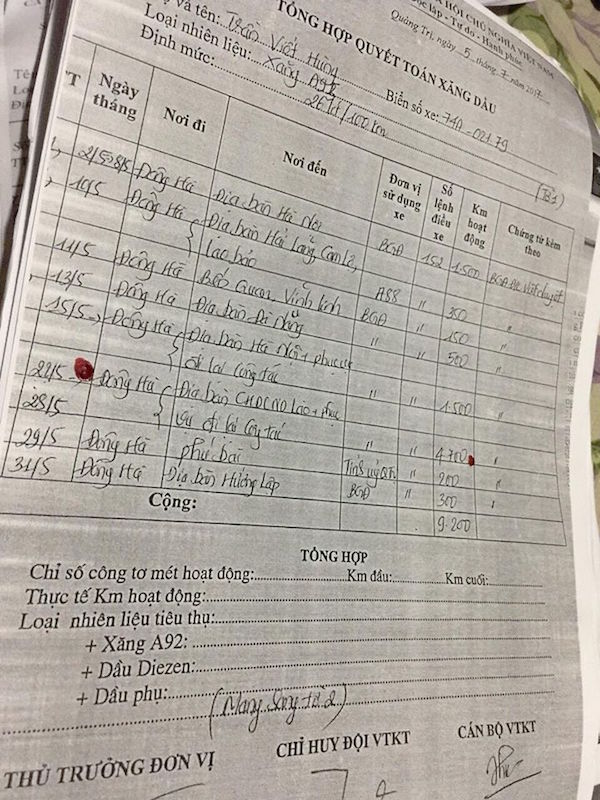 HỘI CHỦ NGHĨA VIỆT NAM
lập - Tự do - Hạnh phúc
Quảng Trị, ngày 5 tháng 7 năm 2017
TỔNG HỢP QUYẾT TOÁN XĂNG DẦU
và tên: Trần Viết Hùng Biển số xe: 74A-021.79
Loại nhiên liệu: Xăng A92
Định mức: 26 lít/100 km
(Tờ 1)
TT Ngày tháng Nơi đi Nơi đến Đơn vị sử dụng xe Số lệnh điều xe Km hoạt động Chứng từ kèm theo
2/5-8/5 Đông Hà Địa bàn Hà Nội BGĐ 152 1.500 BGĐ
10/5 Đông Hà Địa bàn Hải Lăng, Cam Lộ, A88 " 350 "
Lao bảo
11/5 Đông Hà Bến Quan, Vĩnh Linh BGĐ " 150 "
13/5 Đông Hà Địa bàn Đà Nẵng " " 500 "
15/5 Đông Hà Địa bàn Hà Nội + phục vụ " " 1.500 "
đi lại công tác
22/5 Đông Hà Địa bàn CHDCND Lào + phục
28/5 vụ đi lại công tác " " 4.700 "
29/5 Đông Hà phú bài Tỉnh ủy " 200 "
31/5 Đông Hà Địa bàn Hướng Lập BGĐ " 300 "
Cộng: 9.200
TỔNG HỢP
Chỉ số công tơ mét hoạt động: Km đầu: Km cuối:
Thực tế Km hoạt động:
Loại nhiên liệu tiêu thụ:
+ Xăng A92:
+ Dầu Diezen:
+ Dầu phụ:
(Mang sang tờ 2)
THỦ TRƯỞNG ĐƠN VỊ CHỈ HUY ĐỘI VTKT CÁN BỘ VTKT